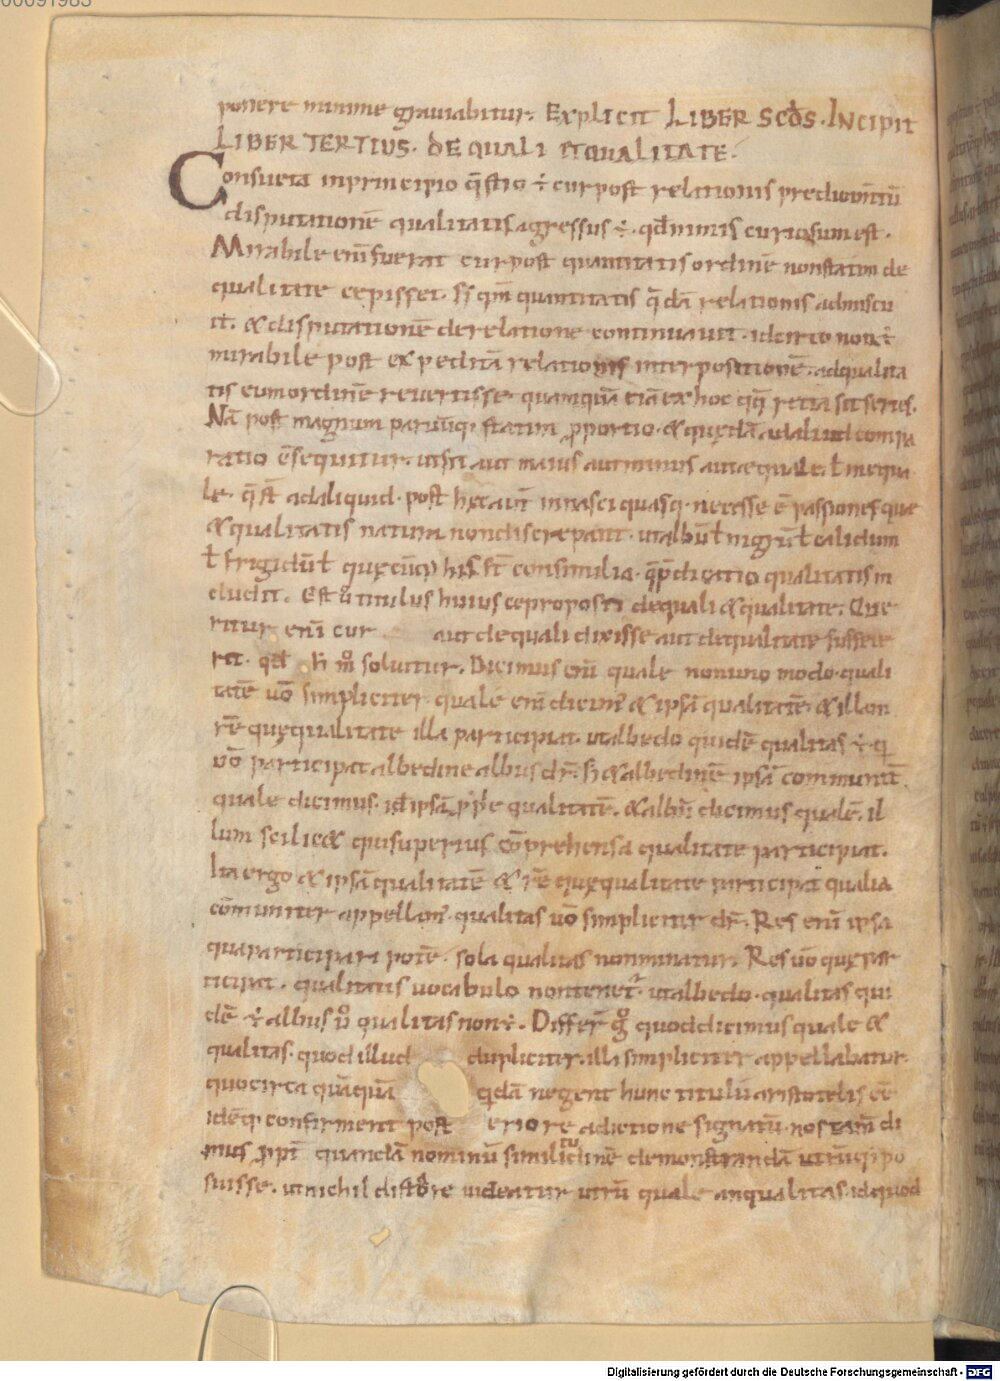 00091985
ponere minime grauabitur. EXPLICIT LIBER SCDS. INCIPIT
LIBER TERTIUS. DE QUALI ET QUALITATE.
Consueta inprincipio q̄stio ÷ cur post relationis
disputationē qualitatis agressus ÷. qd̄ nimis curiosum est.
Mirabile enī fuerat cur post quantitatis ordinē non statim de
qualitate cepisset. Sꝫ qm̄ quantitatis q̄dā relationis admiscu
it. & disputationē de relatione continuauit. idcirco non ÷
mirabile post expeditā relationis interpositionē. ad qualita
tis eum ordinē reuertisse. quamquā etiā ex hoc recta sit series.
Nā post magnum paruūq; statim ꝓportio. & quędā ad aliud compa
ratio c̄sequitur. ut sit aut maius aut minus aut æquale. ł inequa
le. q̄ st̄ ad aliquid. post hęc aut̄ innasci quasq; necesse ē passiones quae
& qualitatis natura non discrepant. ut albū ł nigrū ł calidum
ł frigidū ł quęcūq; his st̄ consimilia. qualitatis in
cludit. Est titulus huius ce propositi de quali & qualitate. Que
ritur enī cur aut de quali dixisse aut de qualitate suffece
rit. qd̄ h̄ m̊ soluitur. Dicimus enī quale non uno modo. quali
tatē uō simpliciter quale enī dicim᷒ & ipsā qualitatē. & illam
rē quę qualitate illa participat. ut albedo quidē qualitas ÷. qi
uō participat albedine albus dr̄. sꝫ & albedinē ipsā communit̄
quale dicimus. id ipsā ꝓprie qualitatē. & albū dicimus qualē. il
lum scilic& qui superius cōprehensa qualitate participat.
Ita ergo & ipsā qualitatē & rē quę qualitate participat qualia
cōmuniter appellam᷒. qualitas uō simpliciter dr̄. Res enī ipsa
qua participari potē. sola qualitas nominatur. Res uō quę par
ticipat. qualitatis uocabulo non tenet᷒. ut albedo. qualitas qui
dē ÷ albus ů qualitas non ÷. Differt̄ g̊ quod dicimus quale &
qualitas. quod illud dupliciter. illa simpliciter appellabatur.
quocirca quāquā qdā negent hunc titulū aristotelis eē
idēq; confirment post eriore adiectione signatū. nos tam̄ di
mus ꝓpt̄ quandā nominū similitudinē demonstrandā utrūq; po
suisse. ut nichil distare uideatur utrū quale an qualitas. id quod
Digitalisierung gefördert durch die Deutsche Forschungsgemeinschaft - DFG